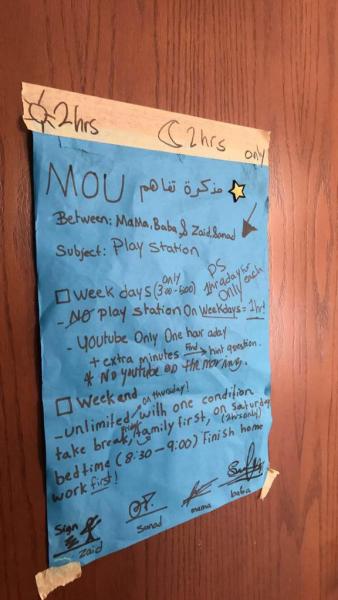 2hrs
2hrs only
MOU مذكرة تفاهم
Between: MaMa, Baba, & Zaid, Sanad
Subject: Play Station
PS 1hr a day for each
Only
Week days (3:00-5:00) only
- No play station On Weekdays = 1hr!
- Youtube Only One hour aday
+ extra minutes Find → hint question.
* No youtube on the morning.
Weekend on thursday!
- unlimited, with one condition
take break, family first, on Saturday (2hrs only)
bedtime (8:30 - 9:00) Finish home
work first!
Sign
zaid
sanad
mama
baba